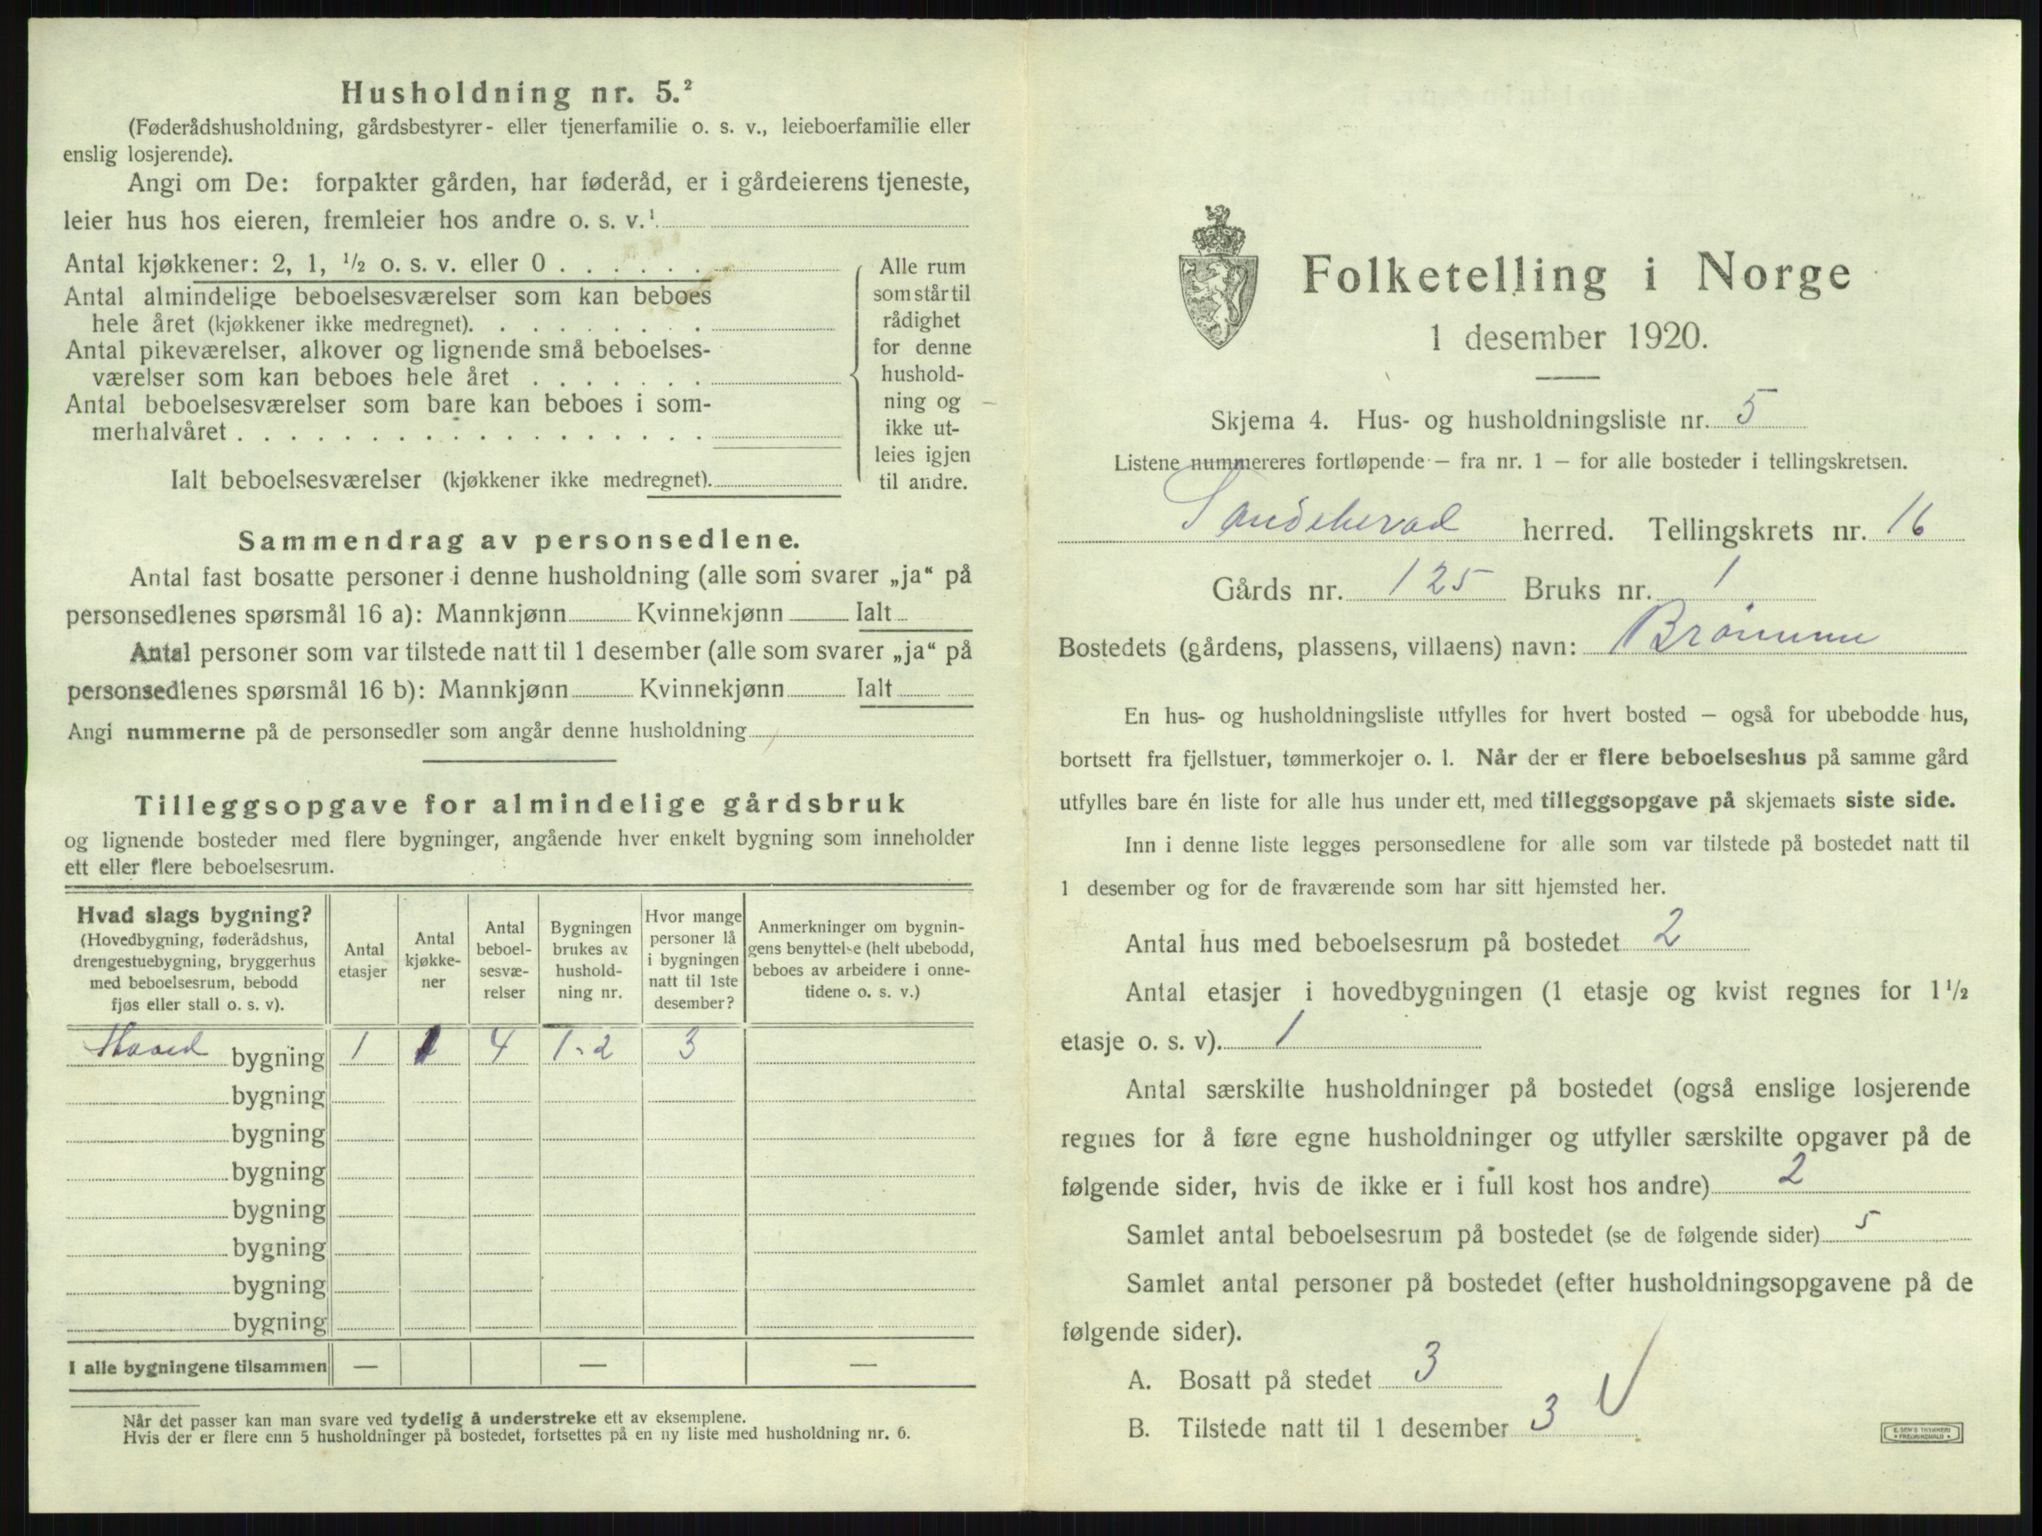 Husholdning nr. 5.²
(Føderådshusholdning, gårdsbestyrer- eller tjenerfamilie o. s. v., leieboerfamilie eller
enslig losjerende).
Angi om De: forpakter gården, har føderåd, er i gårdeierens tjeneste,
leier hus hos eieren, fremleier hos andre o. s. v.¹
Antal kjøkkener: 2, 1, ½ o. s. v. eller 0 . . . . . .
Antal almindelige beboelsesværelser som kan beboes
hele året (kjøkkener ikke medregnet). . . . . . . . .
Antal pikeværelser, alkover og lignende små beboelses-
værelser som kan beboes hele året . . . . . . .
Antal beboelsesværelser som bare kan beboes i som-
merhalvåret . . . . . . . . . . . . . . . . . .
Ialt beboelsesværelser (kjøkkener ikke medregnet).
Alle rum
som står til
rådighet
for denne
hushold-
ning og
ikke ut-
leies igjen
til andre.
Sammendrag av personsedlene.
Antal fast bosatte personer i denne husholdning (alle som svarer „ja“ på
personsedlenes spørsmål 16 a): Mannkjønn Kvinnekjønn Ialt
Antal personer som var tilstede natt til 1 desember (alle som svarer „ja“ på
personsedlenes spørsmål 16 b): Mannkjønn Kvinnekjønn Ialt
Angi nummerne på de personsedler som angår denne husholdning
Tilleggsopgave for almindelige gårdsbruk
og lignende bosteder med flere bygninger, angående hver enkelt bygning som inneholder
ett eller flere beboelsesrum.
Hvad slags bygning?
(Hovedbygning, føderådshus,
drengestuebygning, bryggerhus
med beboelsesrum, bebodd
fjøs eller stall o. s. v).
Antal
etasjer
Antal
kjøkke-
ner
Antal
beboel-
sesvæ-
relser
Bygningen
brukes av
hushold-
ning nr.
Hvor mange
personer lå
i bygningen
natt til 1ste
desember?
Anmerkninger om bygnin-
gens benyttelse (helt ubebodd,
beboes av arbeidere i onne-
tidene o. s. v.)
Hoved bygning 1 1 4 1-2 3
bygning
bygning
bygning
bygning
bygning
bygning
bygning
I alle bygningene tilsammen — — —
Når det passer kan man svare ved tydelig å understreke ett av eksemplene.
Hvis der er flere enn 5 husholdninger på bostedet, fortsettes på en ny liste med husholdning nr. 6.
Folketelling i Norge
1 desember 1920.
Skjema 4. Hus- og husholdningsliste nr. 5
Listene nummereres fortløpende — fra nr. 1 — for alle bosteder i tellingskretsen.
Sandeherad herred. Tellingskrets nr. 16
Gårds nr. 125 Bruks nr. 1
Bostedets (gårdens, plassens, villaens) navn: Brømme
En hus- og husholdningsliste utfylles for hvert bosted — også for ubebodde hus,
bortsett fra fjellstuer, tømmerkojer o. l. Når der er flere beboelseshus på samme gård
utfylles bare én liste for alle hus under ett, med tilleggsopgave på skjemaets siste side.
Inn i denne liste legges personsedlene for alle som var tilstede på bostedet natt til
1 desember og for de fraværende som har sitt hjemsted her.
Antal hus med beboelsesrum på bostedet 2
Antal etasjer i hovedbygningen (1 etasje og kvist regnes for 1½
etasje o. s. v). 1
Antal særskilte husholdninger på bostedet (også enslige losjerende
regnes for å føre egne husholdninger og utfyller særskilte opgaver på de
følgende sider, hvis de ikke er i full kost hos andre) 2
Samlet antal beboelsesrum på bostedet (se de følgende sider) 5
Samlet antal personer på bostedet (efter husholdningsopgavene på de
følgende sider).
A. Bosatt på stedet 3
B. Tilstede natt til 1 desember 3